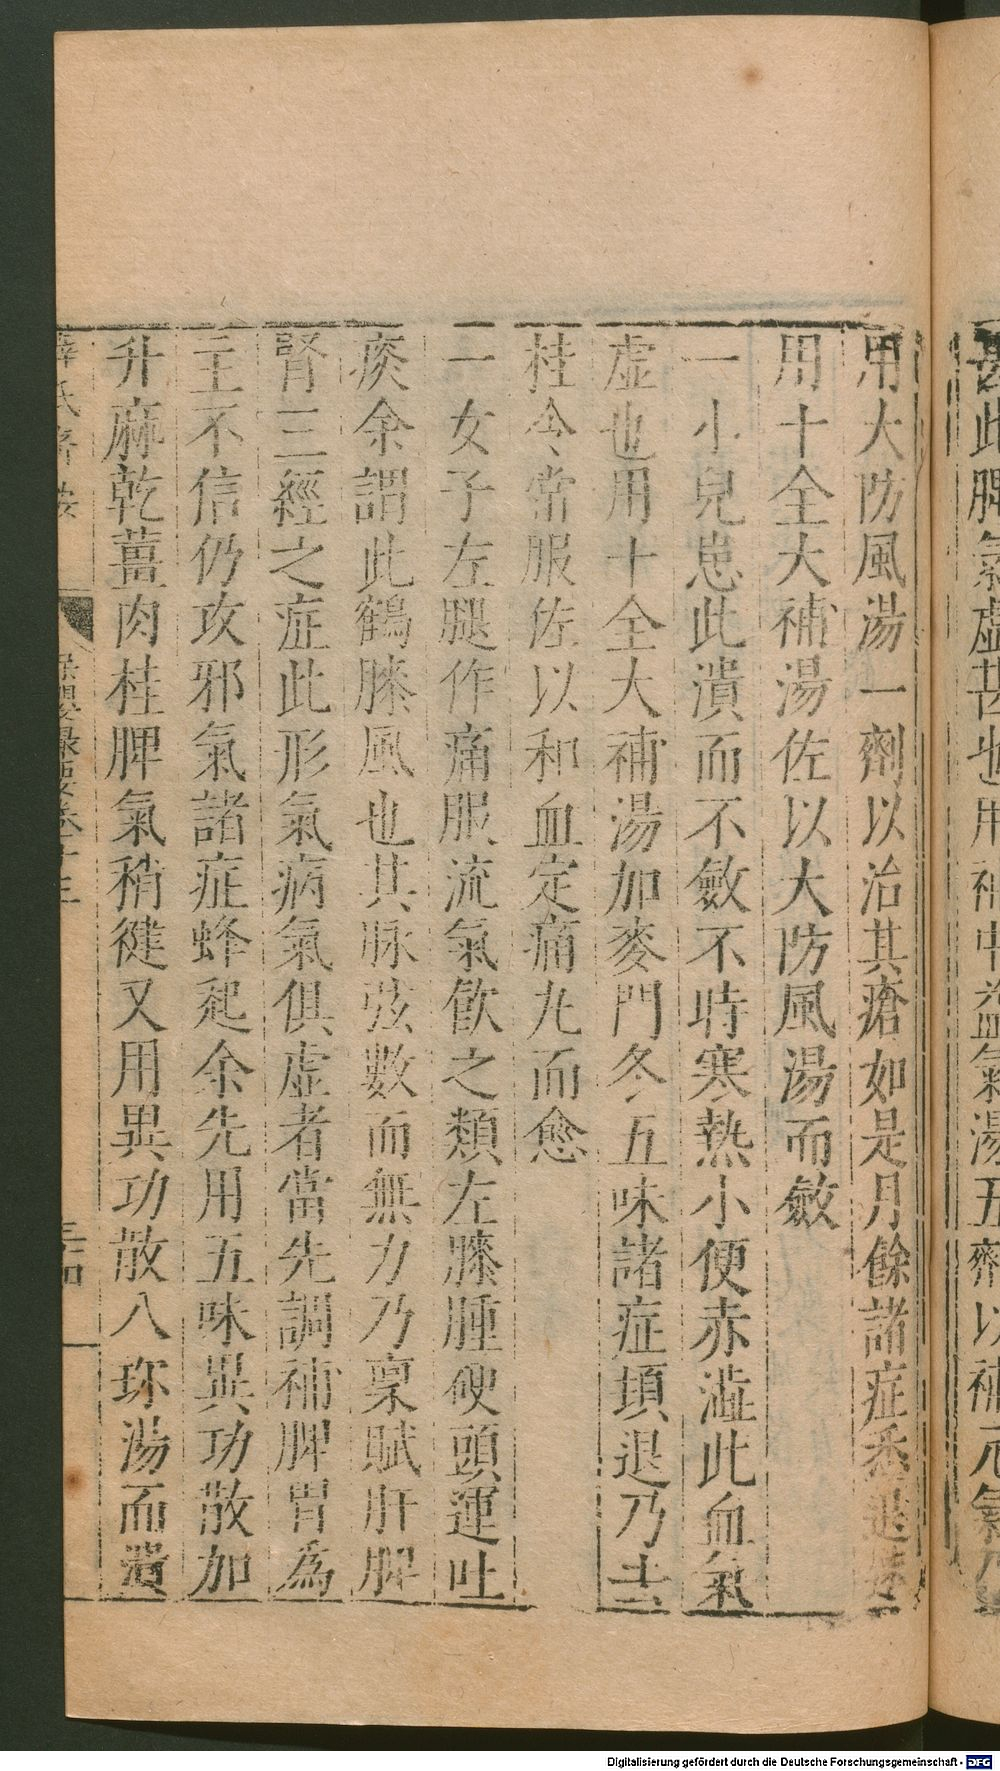 甚此脾氣虛甚也用補中益氣湯五劑以補元氣乃
用大防風湯一劑以治其瘡如是月餘諸症悉退
用十全大補湯佐以大防風湯而斂
一小兒患此潰而不斂不時寒熱小便赤澁此血氣
虛也用十全大補湯加麥門冬五味諸症頓退乃去
桂令常服佐以和血定痛丸而愈
一女子左腿作痛服流氣飲之類左膝腫硬頭運吐
痰余謂此鶴膝風也其脉弦數而無力乃稟賦肝脾
腎三經之症此形氣病氣俱虛者當先調補脾胃為
主不信仍攻邪氣諸症蜂起余先用五味異功散加
升麻乾薑肉桂脾氣稍健又用異功散八珍湯而潰
薛氏醫按
保嬰撮要卷十三
三十四
Digitalisierung gefördert durch die Deutsche Forschungsgemeinschaft - DFG